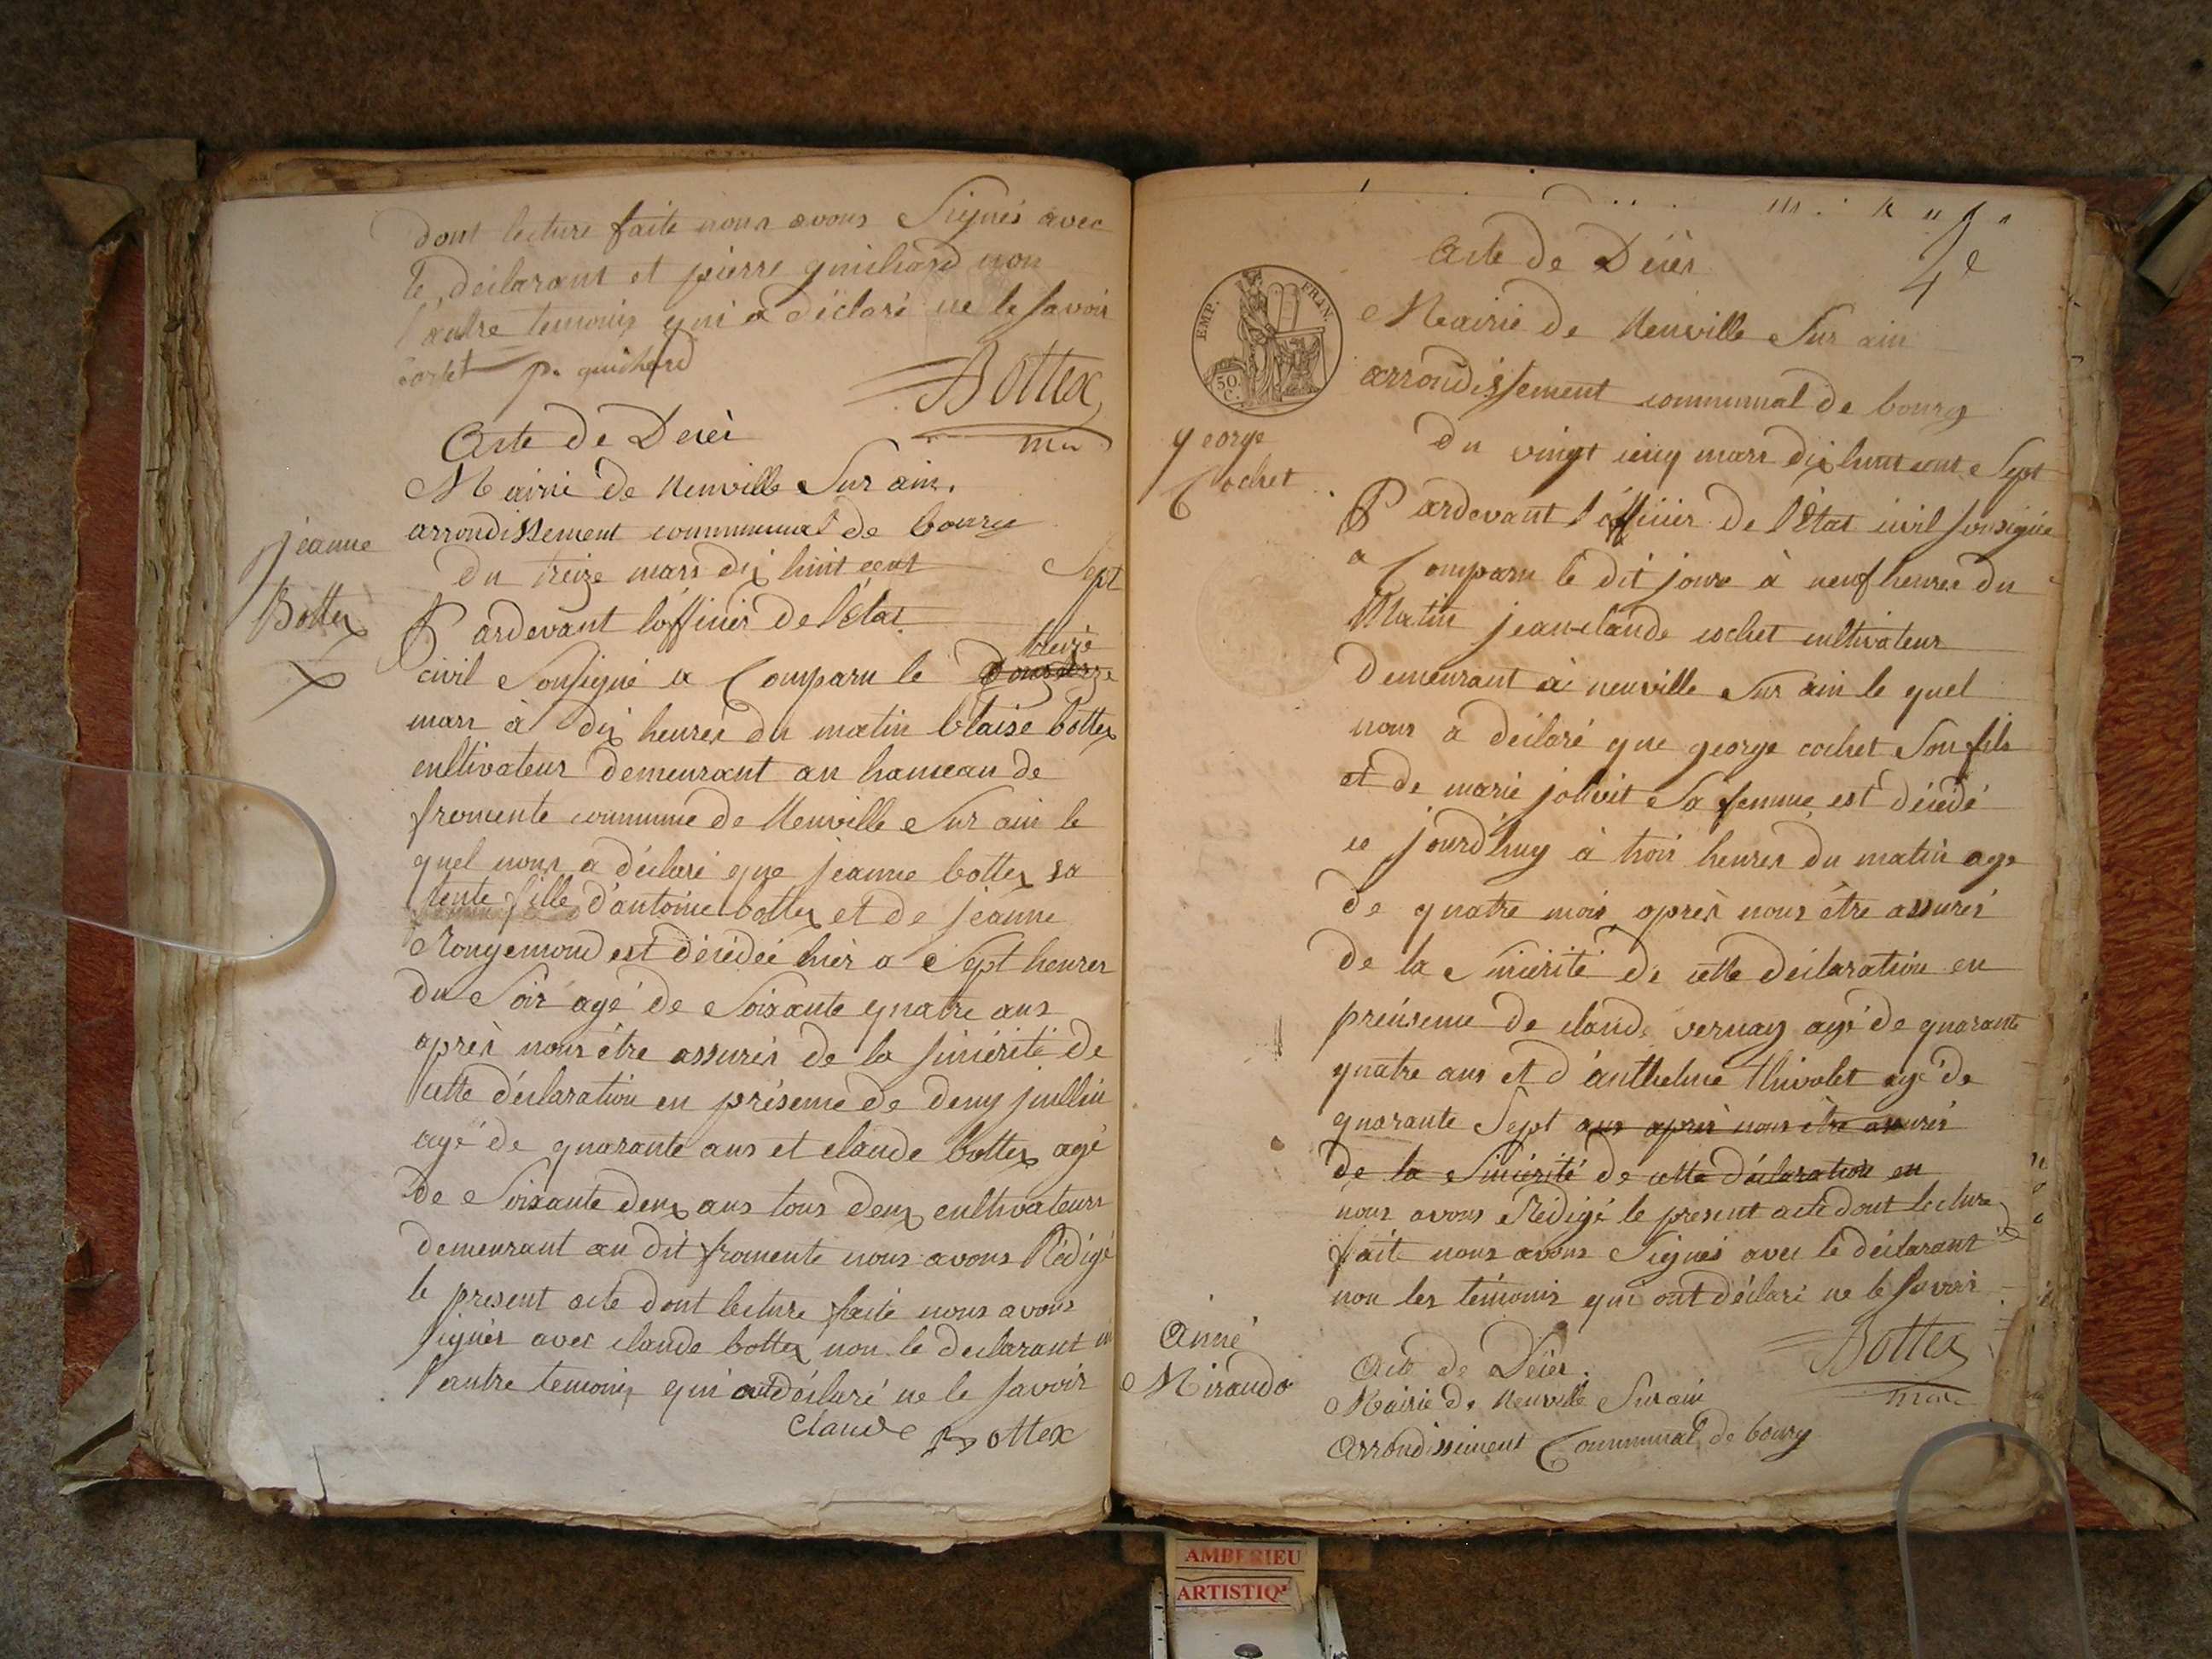 dont lecture faite nous avons Signés avec
le déclarant et pierre guichard non
l'autre temoins qui a déclaré ne le savoir
p. guichard
Bottex
Acte de Decès
Mairie de Neuville Sur ain.
arrondissement communal de bourg
du treize mars dix huit cent Sept
jeanne
Bottex
Pardevant l'officier de l'Etat
treize
civil Sousigné a Comparu le
mars à dix heures du matin blaise bottex
cultivateur demeurant au hameau de
fromente commune de Neuville Sur ain le
quel nous a déclaré que jeanne bottex sa
tente fille d'antoine bottex et de jeanne
Rougemond est décédée hier a Sept heures
du Soir agé de Soixante quatre ans
après nous être assurés de la sincérité de
cette déclaration en présence de deny juillin
agé de quarante ans et claude bottex agé
de Soixante deux ans tous deux cultivateurs
demeurant au dit fromente nous avons Rédigé
le present acte dont lecture faite nous avons
signés avec claude bottex non le declarant ni
l'autre temoins qui ont déclaré ne le savoir
claude Bottex
4e
Acte de Décès
EMP. FRAN.
50.
C.
Mairie de Neuville Sur ain
arrondissement communal de bourg
george
Cochet
du vingt cinq mars dix huit cent Sept
Pardevant l'officier de l'Etat civil sousigné
a Comparu le dit jour à neuf heures du
Matin jean-claude cochet cultivateur
demeurant à neuville Sur ain le quel
nous a déclaré que george cochet Son fils
et de marie jolivit Sa femme est décédé
ce jourd'huy à trois heures du matin age
de quatre mois après nous être assurés
de la Sincérité de cette déclaration en
présence de claude vernay agé de quarante
quatre ans et d'anthelme thivolet agé de
quarante Sept ans après nous être assurés
de la Sincérité de cette déclaration en
nous avons Rédigé le present acte dont lecture
faite nous avons Signés avec le déclarant
non les témoins qui ont déclaré ne le savoir
Bottex
Anne
Mirando
Acte de Décès
Mairie de Neuville Sur ain
Arrondissement Communal de bourg
AMBERIEU
ARTISTIQ